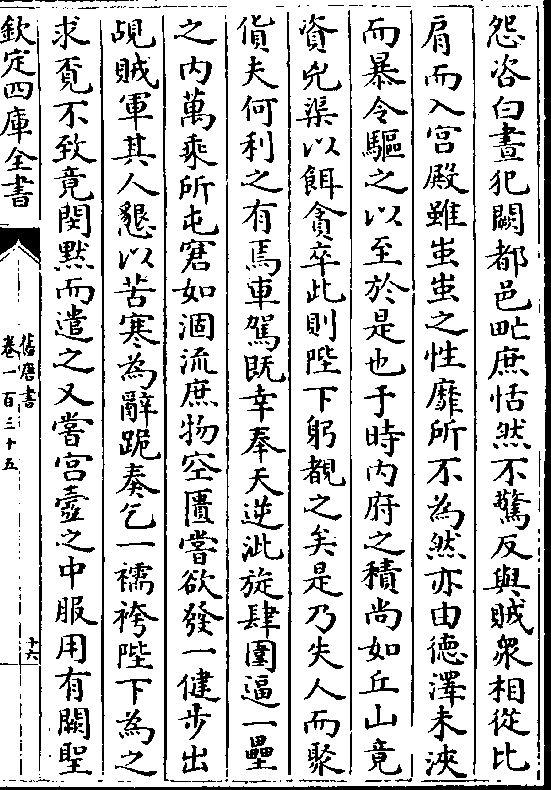 怨咨白晝犯闕都邑甿庶恬然不驚反與賊衆相從比
肩而入宫殿雖蚩蚩之性靡所不為然亦由德澤未浹
而暴令驅之以至於是也于時内府之積尚如丘山竟
資兇渠以餌貪卒此則陛下躬覩之矣是乃失人而聚
貨夫何利之有焉車駕既幸奉天逆泚旋肆圍逼一壘
之内萬乘所屯窘如涸流庶物空匱嘗欲發一健步出
覘賊軍其人懇以苦寒為辭跪奏乞一襦袴陛下為之
求覓不致竟閔黙而遣之又嘗宫壼之中服用有闕聖
欽定四庫全書
舊唐書
卷一百三十五
十六